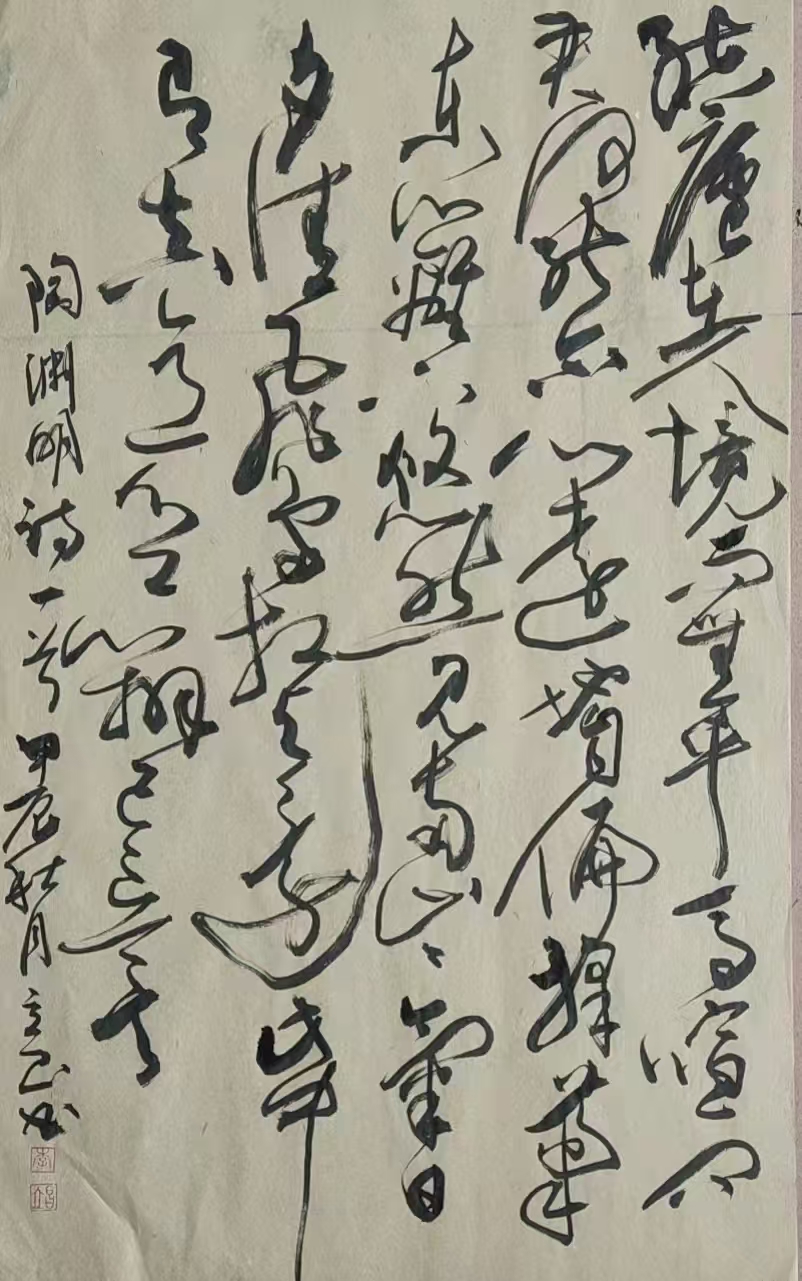 结廬在人境而無車馬喧问
君何能尔心遠地自偏採菊
东籬下悠然见南山々氣日
夕佳飛鸟相与还此中
有真意欲辨已忘言
陶渊明诗一首 甲辰秋月 书